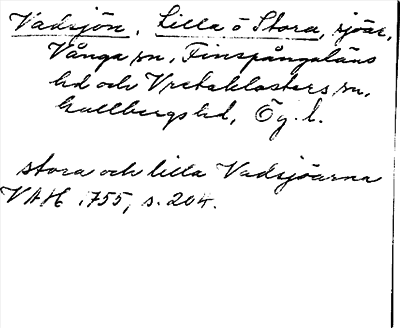 Vadsjön, Lilla o Stora, sjöar,
Vånga sn, Finspångaläns
hd och Vreta klosters sn,
Gullbergs hd, Ög. l.
stora och lilla Vadsjöarna
VAH 1755, s. 204.